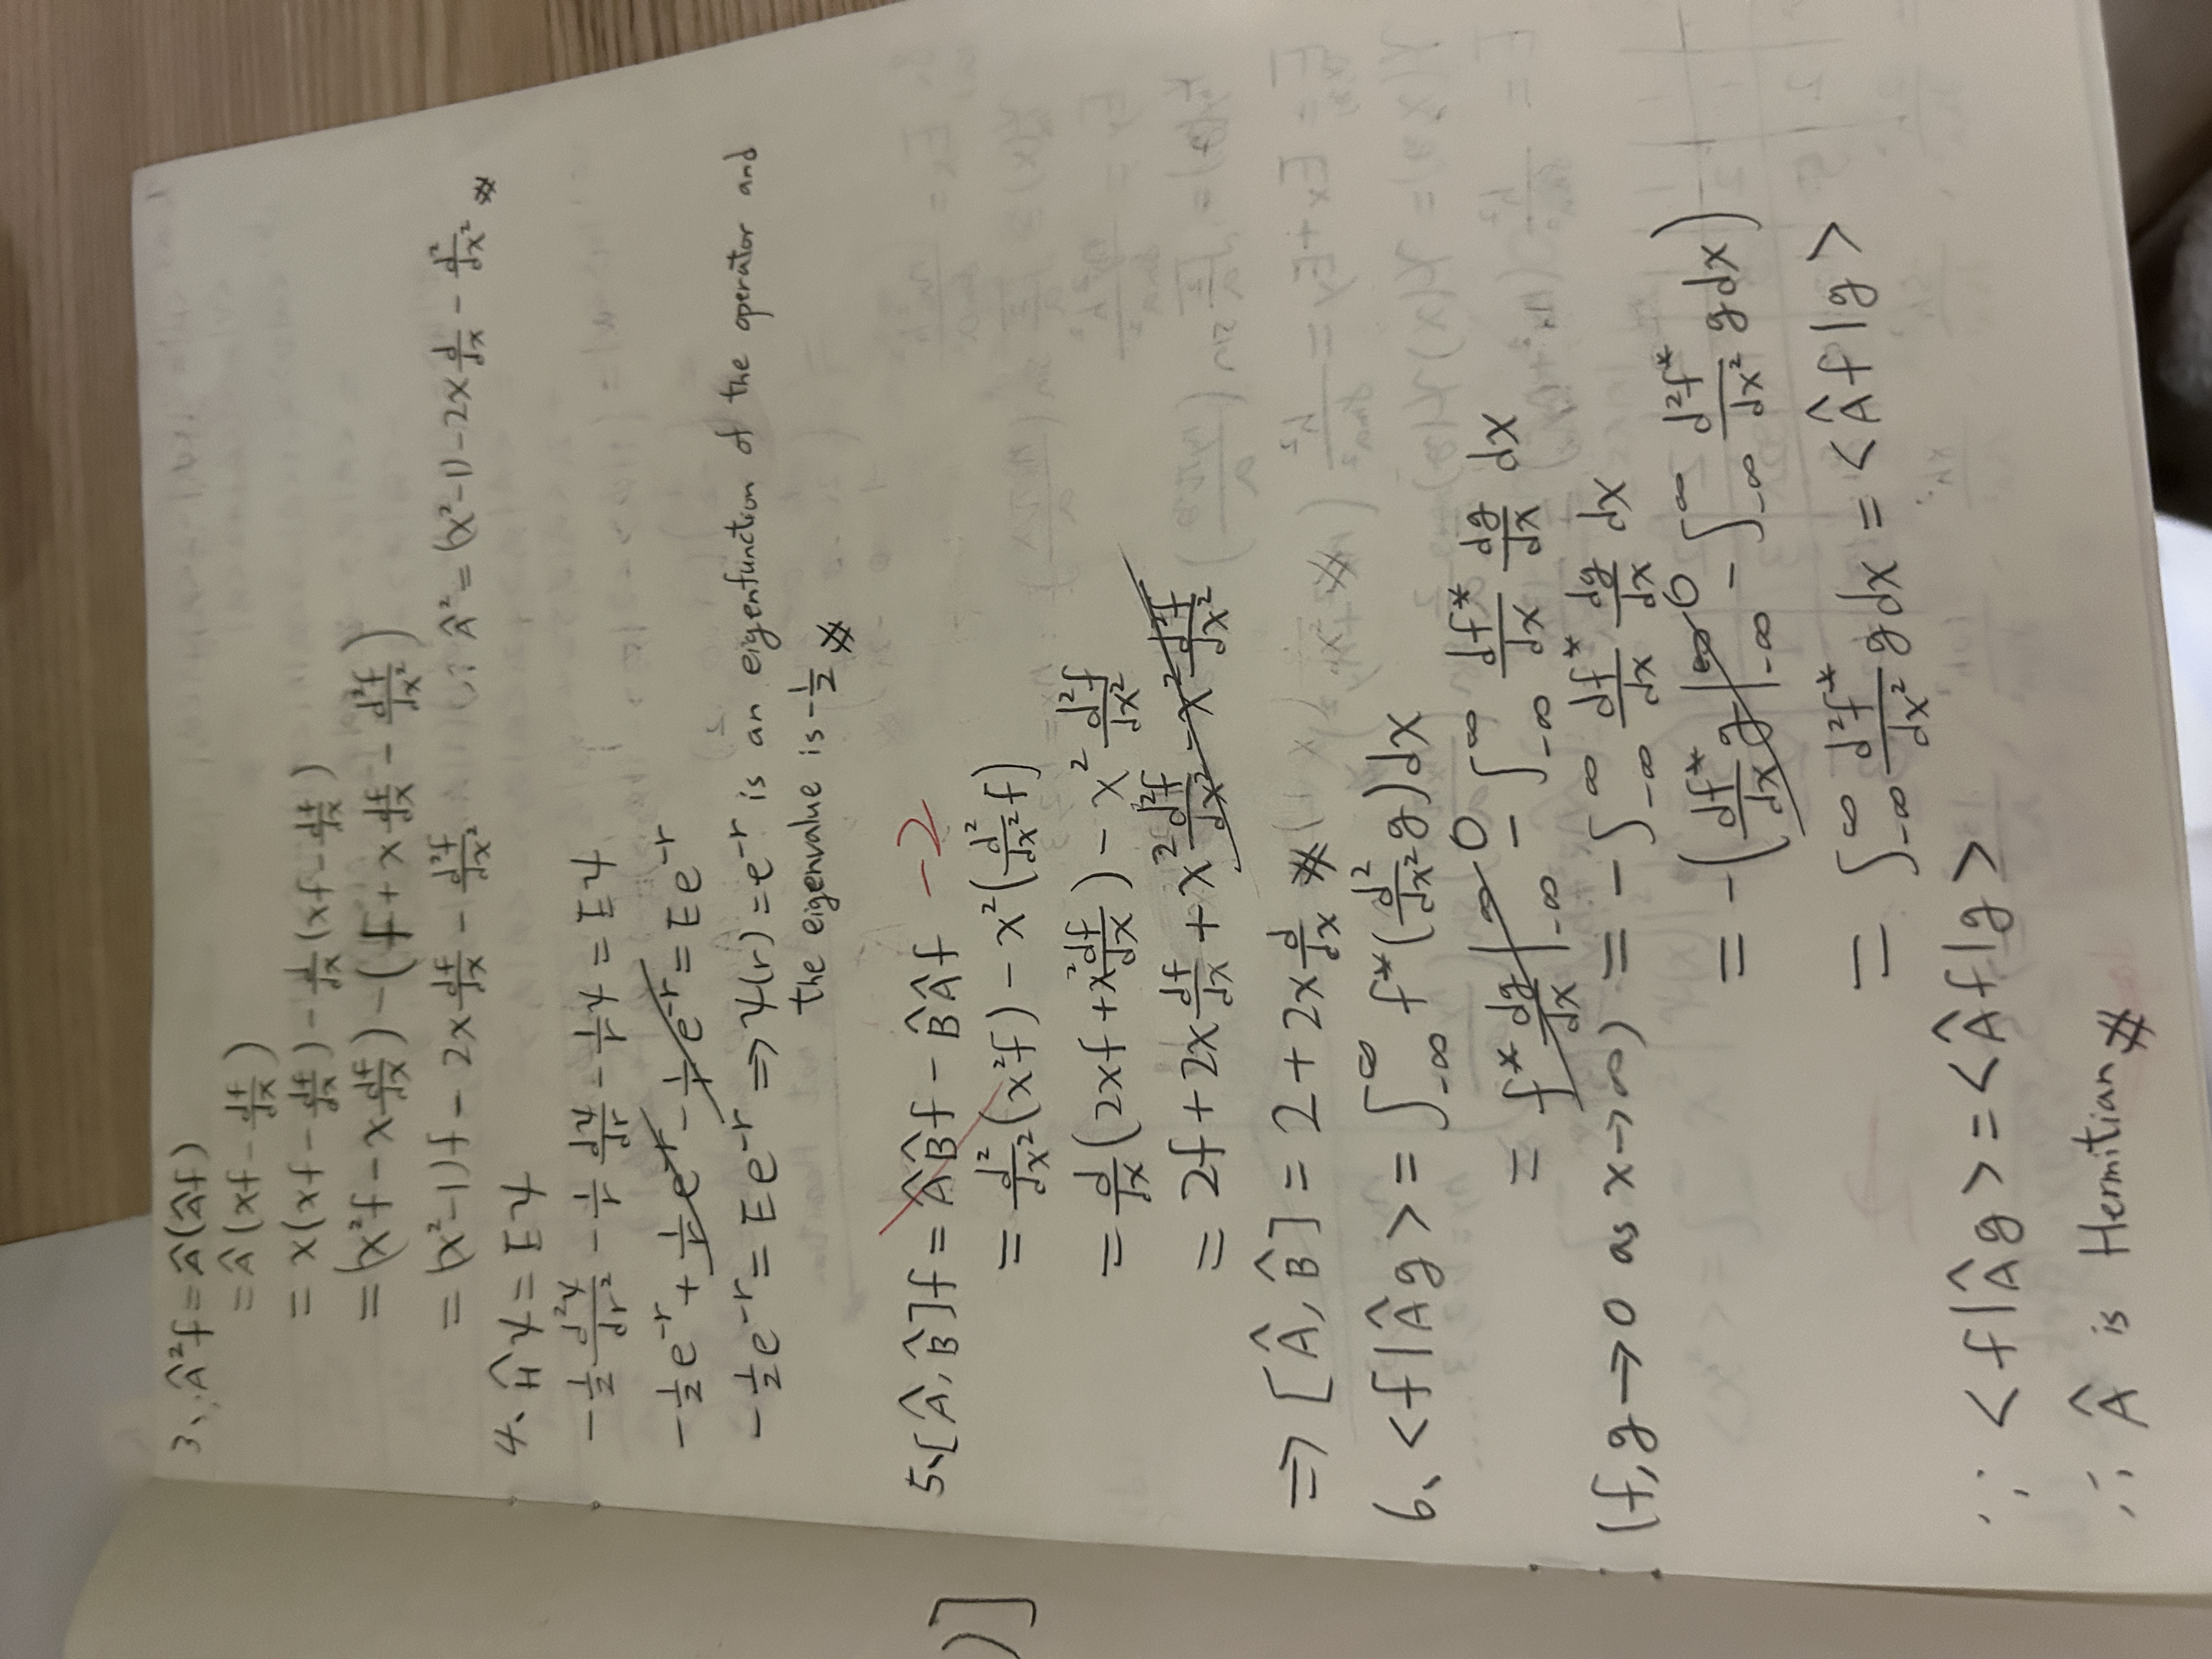 3、Â²f = Â(Âf)
= Â(xf - df/dx)
= x(xf - df/dx) - d/dx(xf - df/dx)
= (x²f - x df/dx) - (f + x df/dx - d²f/dx²)
= (x²-1)f - 2x df/dx - d²f/dx² ∴ Â² = (x²-1) - 2x d/dx - d²/dx² ※
4、Ĥψ = Eψ
-1/2 d²ψ/dr² - 1/r dψ/dr - 1/r ψ = Eψ
-1/2 e^-r + 1/r e^-r - 1/r e^-r = E e^-r
-1/2 e^-r = E e^-r ⇒ ψ(r) = e^-r is an eigenfunction of the operator and
the eigenvalue is -1/2 ※
5、[Â, B̂]f = ÂB̂f - B̂Âf -2
= d²/dx²(x²f) - x²(d²/dx² f)
= d/dx(2xf + x² df/dx) - x² d²f/dx²
= 2f + 2x df/dx + x² d²f/dx² - x² d²f/dx²
⇒ [Â, B̂] = 2 + 2x d/dx ※
6、<f|Âg> = ∫_-∞^∞ f*(d²/dx² g)dx
= f* dg/dx |_-∞^∞ 0 - ∫_-∞^∞ df*/dx dg/dx dx
(f, g → 0 as x → ∞) = -∫_-∞^∞ df*/dx dg/dx dx
= -(df*/dx g |_-∞^∞ 0 - ∫_-∞^∞ d²f*/dx² g dx)
= ∫_-∞^∞ d²f*/dx² g dx = <Âf|g>
∵ <f|Âg> = <Âf|g>
∴ Â is Hermitian ※
)]